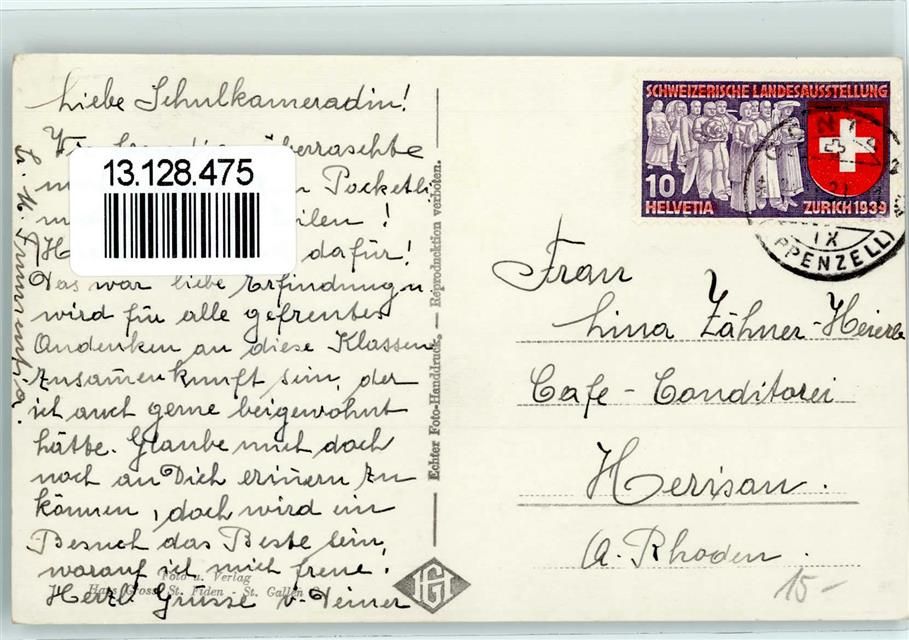 Liebe Schulkameradin!
überraschte
13.128.475
Pocketli
dafür!
Das war liebe Erfindung u
wird für alle gefreutes
Andenken an diese Klassen
zusamenkunft sein, der
ich auch gerne beigewohnt
hätte. Glaube mich doch
noch an Dich erinern zu
können, doch wird im
Besuch das Beste sein,
worauf ich mich freue.
Herzl. Grüsse v. Deiner
Foto u. Verlag
Hans Gross, St. Fiden - St. Gallen
Echter Foto-Handdruck. — Reproduktion verboten.
HG
SCHWEIZERISCHE LANDESAUSSTELLUNG
10
HELVETIA ZÜRICH 1939
IX
PPENZELL)
Frau
Lina Zähner-Heierle
Cafe - Conditorei
Herisau.
A. Rhoden.
15-